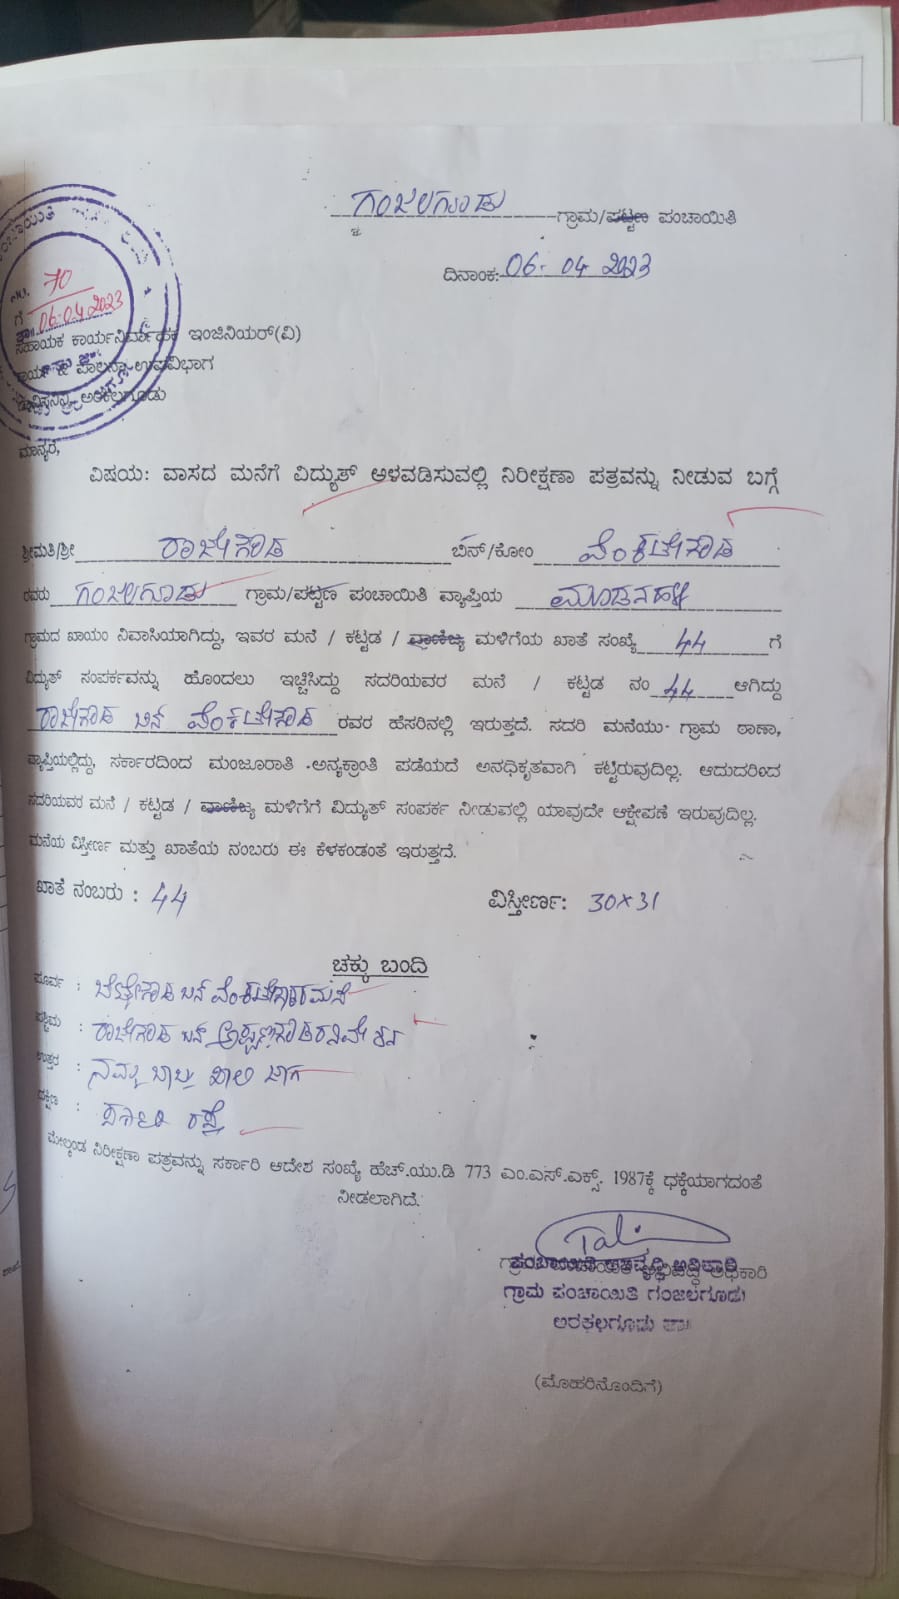 ಗಂಜಲಗೂಡು ಗ್ರಾಮ/ಪಟ್ಟಣ ಪಂಚಾಯಿತಿ
ದಿನಾಂಕ: 06-04-2023
70
06-04-2023
ಸಹಾಯಕ ಕಾರ್ಯನಿರ್ವಾಹಕ ಇಂಜಿನಿಯರ್(ವಿ)
ಪಾಲನಾ ಉಪವಿಭಾಗ
ಅರಕಲಗೂಡು
ಮಾನ್ಯರೆ,
ವಿಷಯ: ವಾಸದ ಮನೆಗೆ ವಿದ್ಯುತ್ ಅಳವಡಿಸುವಲ್ಲಿ ನಿರೀಕ್ಷಣಾ ಪತ್ರವನ್ನು ನೀಡುವ ಬಗ್ಗೆ
ಶ್ರೀಮತಿ/ಶ್ರೀ ರಾಜೇಗೌಡ ಬಿನ್/ಕೋಂ ವೆಂಕಟೇಗೌಡ
ರವರು ಗಂಜಲಗೂಡು ಗ್ರಾಮ/ಪಟ್ಟಣ ಪಂಚಾಯಿತಿ ವ್ಯಾಪ್ತಿಯ ಮಾಡನಹಳ್ಳಿ
ಗ್ರಾಮದ ಖಾಯಂ ನಿವಾಸಿಯಾಗಿದ್ದು, ಇವರ ಮನೆ / ಕಟ್ಟಡ / ವಾಣಿಜ್ಯ ಮಳಿಗೆಯ ಖಾತೆ ಸಂಖ್ಯೆ 44 ಗೆ
ವಿದ್ಯುತ್ ಸಂಪರ್ಕವನ್ನು ಹೊಂದಲು ಇಚ್ಚಿಸಿದ್ದು ಸದರಿಯವರ ಮನೆ / ಕಟ್ಟಡ ನಂ 44 ಆಗಿದ್ದು
ರಾಜೇಗೌಡ ಬಿನ್ ವೆಂಕಟೇಗೌಡ ರವರ ಹೆಸರಿನಲ್ಲಿ ಇರುತ್ತದೆ. ಸದರಿ ಮನೆಯು ಗ್ರಾಮ ಠಾಣಾ,
ವ್ಯಾಪ್ತಿಯಲ್ಲಿದ್ದು, ಸರ್ಕಾರದಿಂದ ಮಂಜೂರಾತಿ ಅನ್ಯಕ್ರಾಂತಿ ಪಡೆಯದೆ ಅನಧಿಕೃತವಾಗಿ ಕಟ್ಟಿರುವುದಿಲ್ಲ. ಆದುದರಿಂದ
ಸದರಿಯವರ ಮನೆ / ಕಟ್ಟಡ / ವಾಣಿಜ್ಯ ಮಳಿಗೆಗೆ ವಿದ್ಯುತ್ ಸಂಪರ್ಕ ನೀಡುವಲ್ಲಿ ಯಾವುದೇ ಆಕ್ಷೇಪಣೆ ಇರುವುದಿಲ್ಲ.
ಮನೆಯ ವಿಸ್ತೀರ್ಣ ಮತ್ತು ಖಾತೆಯ ನಂಬರು ಈ ಕೆಳಕಂಡಂತೆ ಇರುತ್ತದೆ.
ಖಾತೆ ನಂಬರು : 44 ವಿಸ್ತೀರ್ಣ: 30×31
ಚಕ್ಕು ಬಂದಿ
ಪೂರ್ವ : ಬಿನ್ ಮನೆ
ಪಶ್ಚಿಮ : ರಾಜೇಗೌಡ ಬಿನ್
ಉತ್ತರ : ನಮ್ಮ ಬಾಬ್ತು ಖಾಲಿ ಜಾಗ
ದಕ್ಷಿಣ : ರಸ್ತೆ
ಮೇಲ್ಕಂಡ ನಿರೀಕ್ಷಣಾ ಪತ್ರವನ್ನು ಸರ್ಕಾರಿ ಆದೇಶ ಸಂಖ್ಯೆ ಹೆಚ್.ಯು.ಡಿ 773 ಎಂ.ಎಸ್.ಎಕ್ಸ್. 1987ಕ್ಕೆ ಧಕ್ಕೆಯಾಗದಂತೆ
ನೀಡಲಾಗಿದೆ.
ಗ್ರಾಮ ಪಂಚಾಯಿತಿ ಗಂಜಲಗೂಡು
ಅರಕಲಗೂಡು ತಾ॥
(ಮೊಹರಿನೊಂದಿಗೆ)